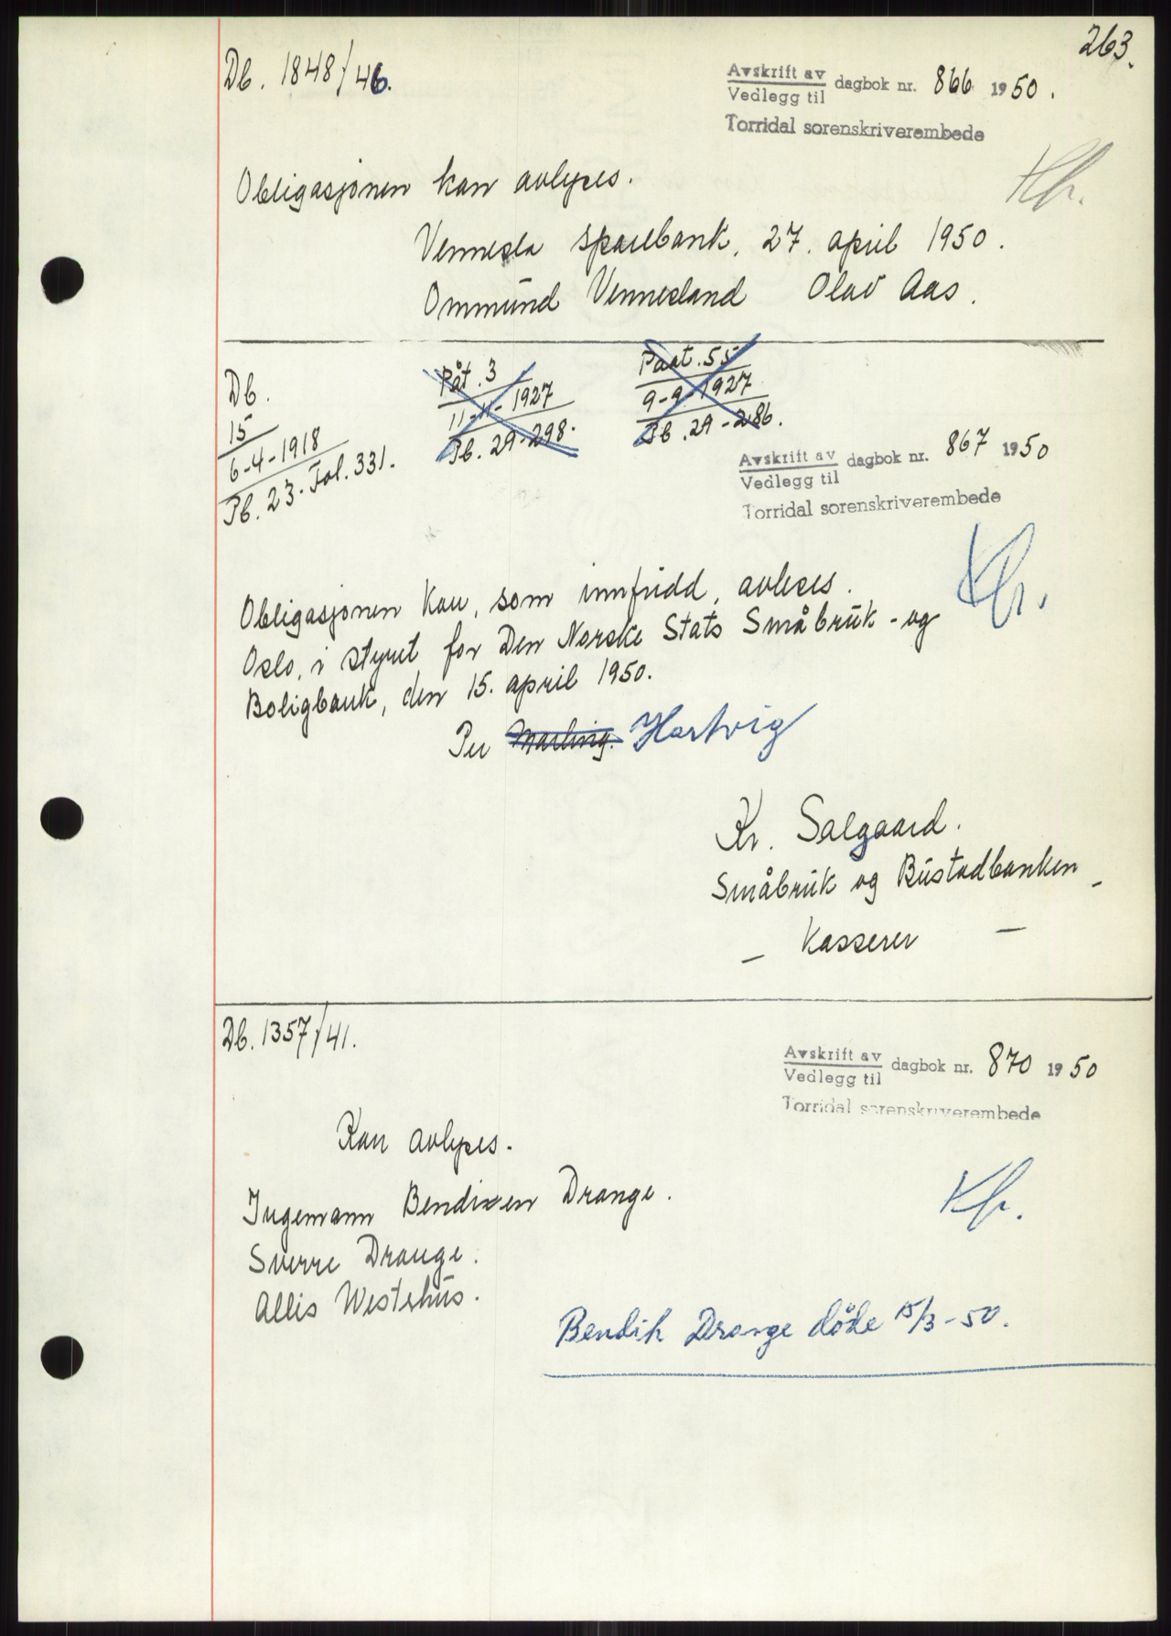 263.
Db. 1848/46.
Avskrift av
Vedlegg til dagbok nr. 866 1950.
Torridal sorenskriverembede
Kfr.
Obligasjonen kan avlyses.
Vennesla sparebank, 27. april 1950.
Ommund Vennesland Olav Aas.
Db.
15
6-4-1918
Pb. 23. Fol. 331.
Påt. 3
11-11-1927
Pb. 29-298.
Paat. 55
9-9-1927
Pb. 29-286.
Avskrift av
Vedlegg til dagbok nr. 867 1950
Torridal sorenskriverembede
Kfr.
Obligasjonen kan, som innfridd, avlyses.
Oslo, i styret for Den Norske Stats Småbruk- og
Boligbank, den 15. april 1950.
Per Hartvig
Kr. Salgaard.
Småbruk og Bustadbanken
- Kasserer -
Db. 1357/41.
Avskrift av
Vedlegg til dagbok nr. 870 1950
Torridal sorenskriverembede
Kan avlyses.
Kfr.
Ingemann Bendixen Drange.
Sverre Drange.
Allis Westehus.
Bendik Drange døde 15/3-50.